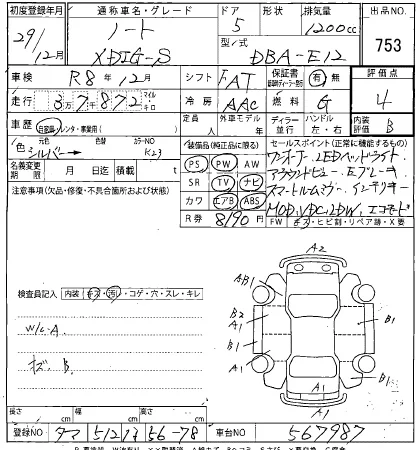 初度登録年月 通称車名・グレード ドア 形状 排気量 出品NO.
29/12月 ノート X DIG-S 5 1200cc 753
型/式 DBA-E12
車検 R8年12月 シフト FAT 保証書 有 無 評価点
走行 37872 マイル キロ 冷房 AAC 燃料 G 4
車歴 自家用 レンタ・事業用( ) 定員 人 外車モデル 年 ディーラー 並行 ハンドル 左・右 内装評価 B
色 元色 シルバー 色替 カラーNO K23
装備品(純正品に限る) セールスポイント(正常に機能するもの)
名義変更期限 月 日迄 積載 t
PS PW AW ワンオーナー LEDヘッドライト
SR TV ナビ アラウンドビュー Eブレーキ
カワ エアB ABS スマートルームミラー インテリキー
R券 8190円 MOD, VDC, LDW, エコモード
注意事項(欠品・修復・不具合箇所および状態)
FW キズ・ヒビ割・リペア跡・X要
検査員記入 内装 キズ・汚レ・コゲ・穴・スレ・キレ
W/L-A
キズ. B
A2
AB1
B2
A1
B1
A1
B1
A1
A1
長さ cm 幅 cm 高さ cm
登録NO 車台NO 567987